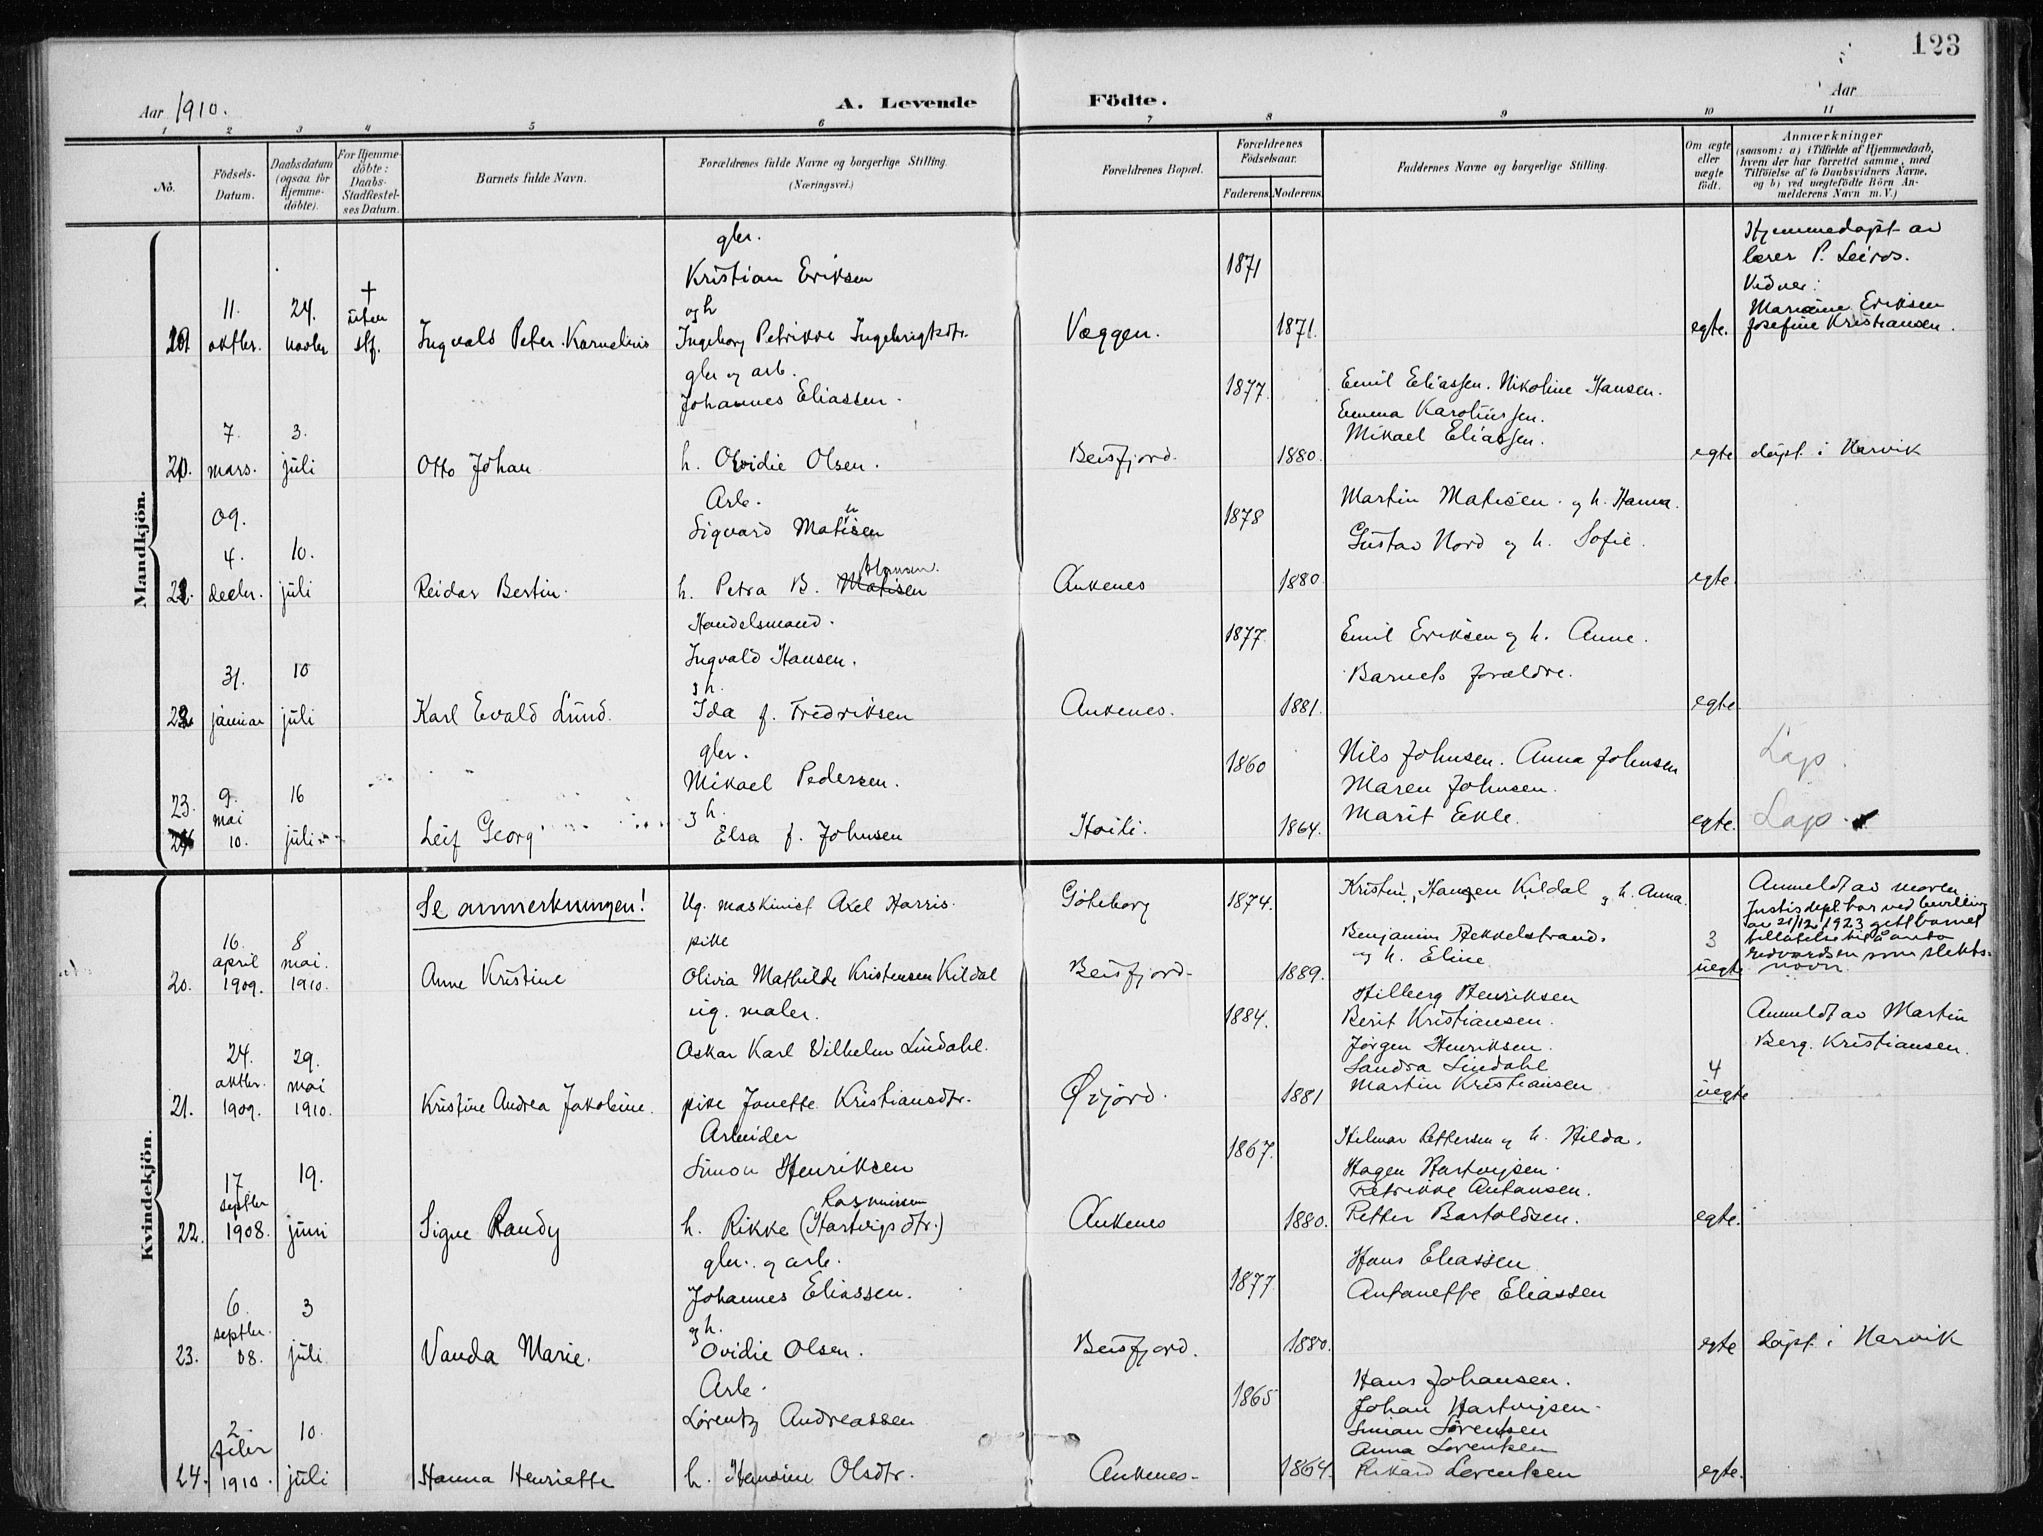 123
Aar 1910.
A. Levende Födte.
Aar
1 2 3 4 5 6 7 8 9 10 11
No.
Födsels-Datum.
Daabsdatum (ogsaa for Hjemme-döbte).
For Hjemme-döbte: Daabs-Stadfæstel-ses Datum.
Barnets fulde Navn.
Forældrenes fulde Navne og borgerlige Stilling.
(Næringsvei.)
Forældrenes Bopæl.
Forældrenes Födselsaar.
Faderens. Moderens.
Faddernes Navne og borgerlige Stilling.
Om ægte eller uægte födt.
Anmærkninger
(saasom: a) i Tilfælde af Hjemmedaab,
hvem der har forrettet samme, med
Tilföielse af to Daabsvidners Navne,
og b) ved uægtefödte Börn An-
melderens Navn m. V.)
Mandkjön.
11. oktbr.
24. novbr
† uten stf.
Ingvald Peter Kornelius
gbr.
Kristian Eriksen
og h
Ingeborg Petrikke Ingebrigtsdtr.
Væggen.
1871
1871.
egte.
Hjemmedøpt av
lærer P. Leiros.
Vidner:
Marianne Eriksen
Josefine Kristiansen.
20.
7. mars.
3. juli
Otto Johan
gbr og arb.
Johannes Eliassen.
h. Ovidie Olsen.
Beisfjord.
1877.
1880.
Emil Eliassen. Nikoline Hansen.
Emma Karoliussen.
Mikael Eliassen.
egte
døpt i Narvik
09.
4. decbr.
10. juli
Reidar Bertin.
Arb.
Sigvard Matisen
h. Petra B. Matisen
Ankenes
1878
1880
Martin Matisen og h. Hanna.
Gustav Nord og h. Sofie.
egte.
22.
31. januar
10 juli
Karl Evald Lund.
Handelsmand.
Ingvald Hansen.
g h.
Ida f. Fredriksen
Ankenes.
1877.
1881.
Emil Eriksen og h. Anne.
Barnets forældre.
egte
23.
9. mai 10.
16 juli
Leif Georg
gbr.
Mikael Pedersen.
g h.
Elsa f. Johnsen
1860
1864.
Nils Johnsen. Anna Johnsen
Maren Johnsen.
Marit
egte.
Lap.
Lap.
Kvindekjön.
20.
16. april 1909.
8 mai. 1910.
Se anmerkningen!
Anne Kristine
Ug. maskinist Axel Harris.
pike
Olivia Mathilde Kristensen Kildal
Göteborg
Beisfjord.
1874.
1889.
Hansen Kildal og h. Anna.
Benjamin
og h. Eline
3
uegte
Anmeldt av moren
Justisdept. har ved bevilling
av 21/12 1923 gitt barnet
tillatelse til å anta
Edvardsen som slekts-
navn.
21.
24. oktbr. 1909.
29. mai 1910.
Kristine Andrea Jakobine.
ug. maler.
Oskar Karl Vilhelm Lindahl.
pike Jonette Kristiansdtr.
Øijord.
1884.
1881
Hilberg Henriksen
Berit Kristiansen.
Jørgen Henriksen.
Sandra Lindahl
Martin Kristiansen
4
uegte
Anmeldt av Martin
Berg. Kristiansen.
22.
17 septbr 1908.
19. juni
Signe Randy
Arbeider
Simon Henriksen
Rasmussen
h. Rikke (Hartvigsdtr.)
Ankenes
1867.
1880.
Hilmar Pettersen og h. Hilda.
Hagen Hartvigsen.
Petrikke Antonsen.
Petter Bartoldsen.
egte.
23.
6. septbr. 08.
3 juli
Vanda Marie.
gbr. og arb.
Johannes Eliassen.
g h.
Ovidie Olsen.
Beisfjord.
1877
1880.
Hans Eliassen
Antonette Eliassen
egte
døpt i Narvik
24.
2. febr 1910.
10. juli
Hanna Henriette
Arb.
Lorentz Andreassen
h. Hansine Olsdtr.
Ankenes.
1865
1864.
Hans Johansen.
Johan Hartvigsen.
Simon Sørensen
Anna Lorentsen
Rikard Lorentsen
egte.